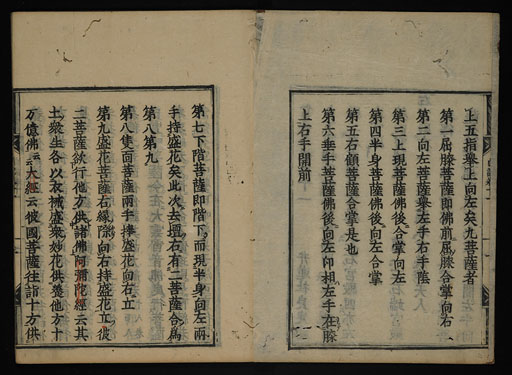 上五指擧上向左矣九菩薩者
第一屈膝菩薩即佛前屈膝合掌向右
第二向左菩薩擧左手右手陰
第三上現菩薩佛後合掌向左
第四半身菩薩佛後向左合掌
第五右顧菩薩合掌是也
第六垂手菩薩佛後向左印相左手在膝
上右手開前
第七下階菩薩即階下而現半身向左兩
手持盛花矣此次去壇右有二菩薩合爲
第八第九
第八隻面菩薩兩手捧盛花向右立
第九盛花菩薩右緣際向右持盛花立彼
二菩薩欲行他方供諸佛阿彌陀經云其
土衆生各以衣裓盛衆妙花供養他方十
万億佛云大經云彼國菩薩往詣十方供